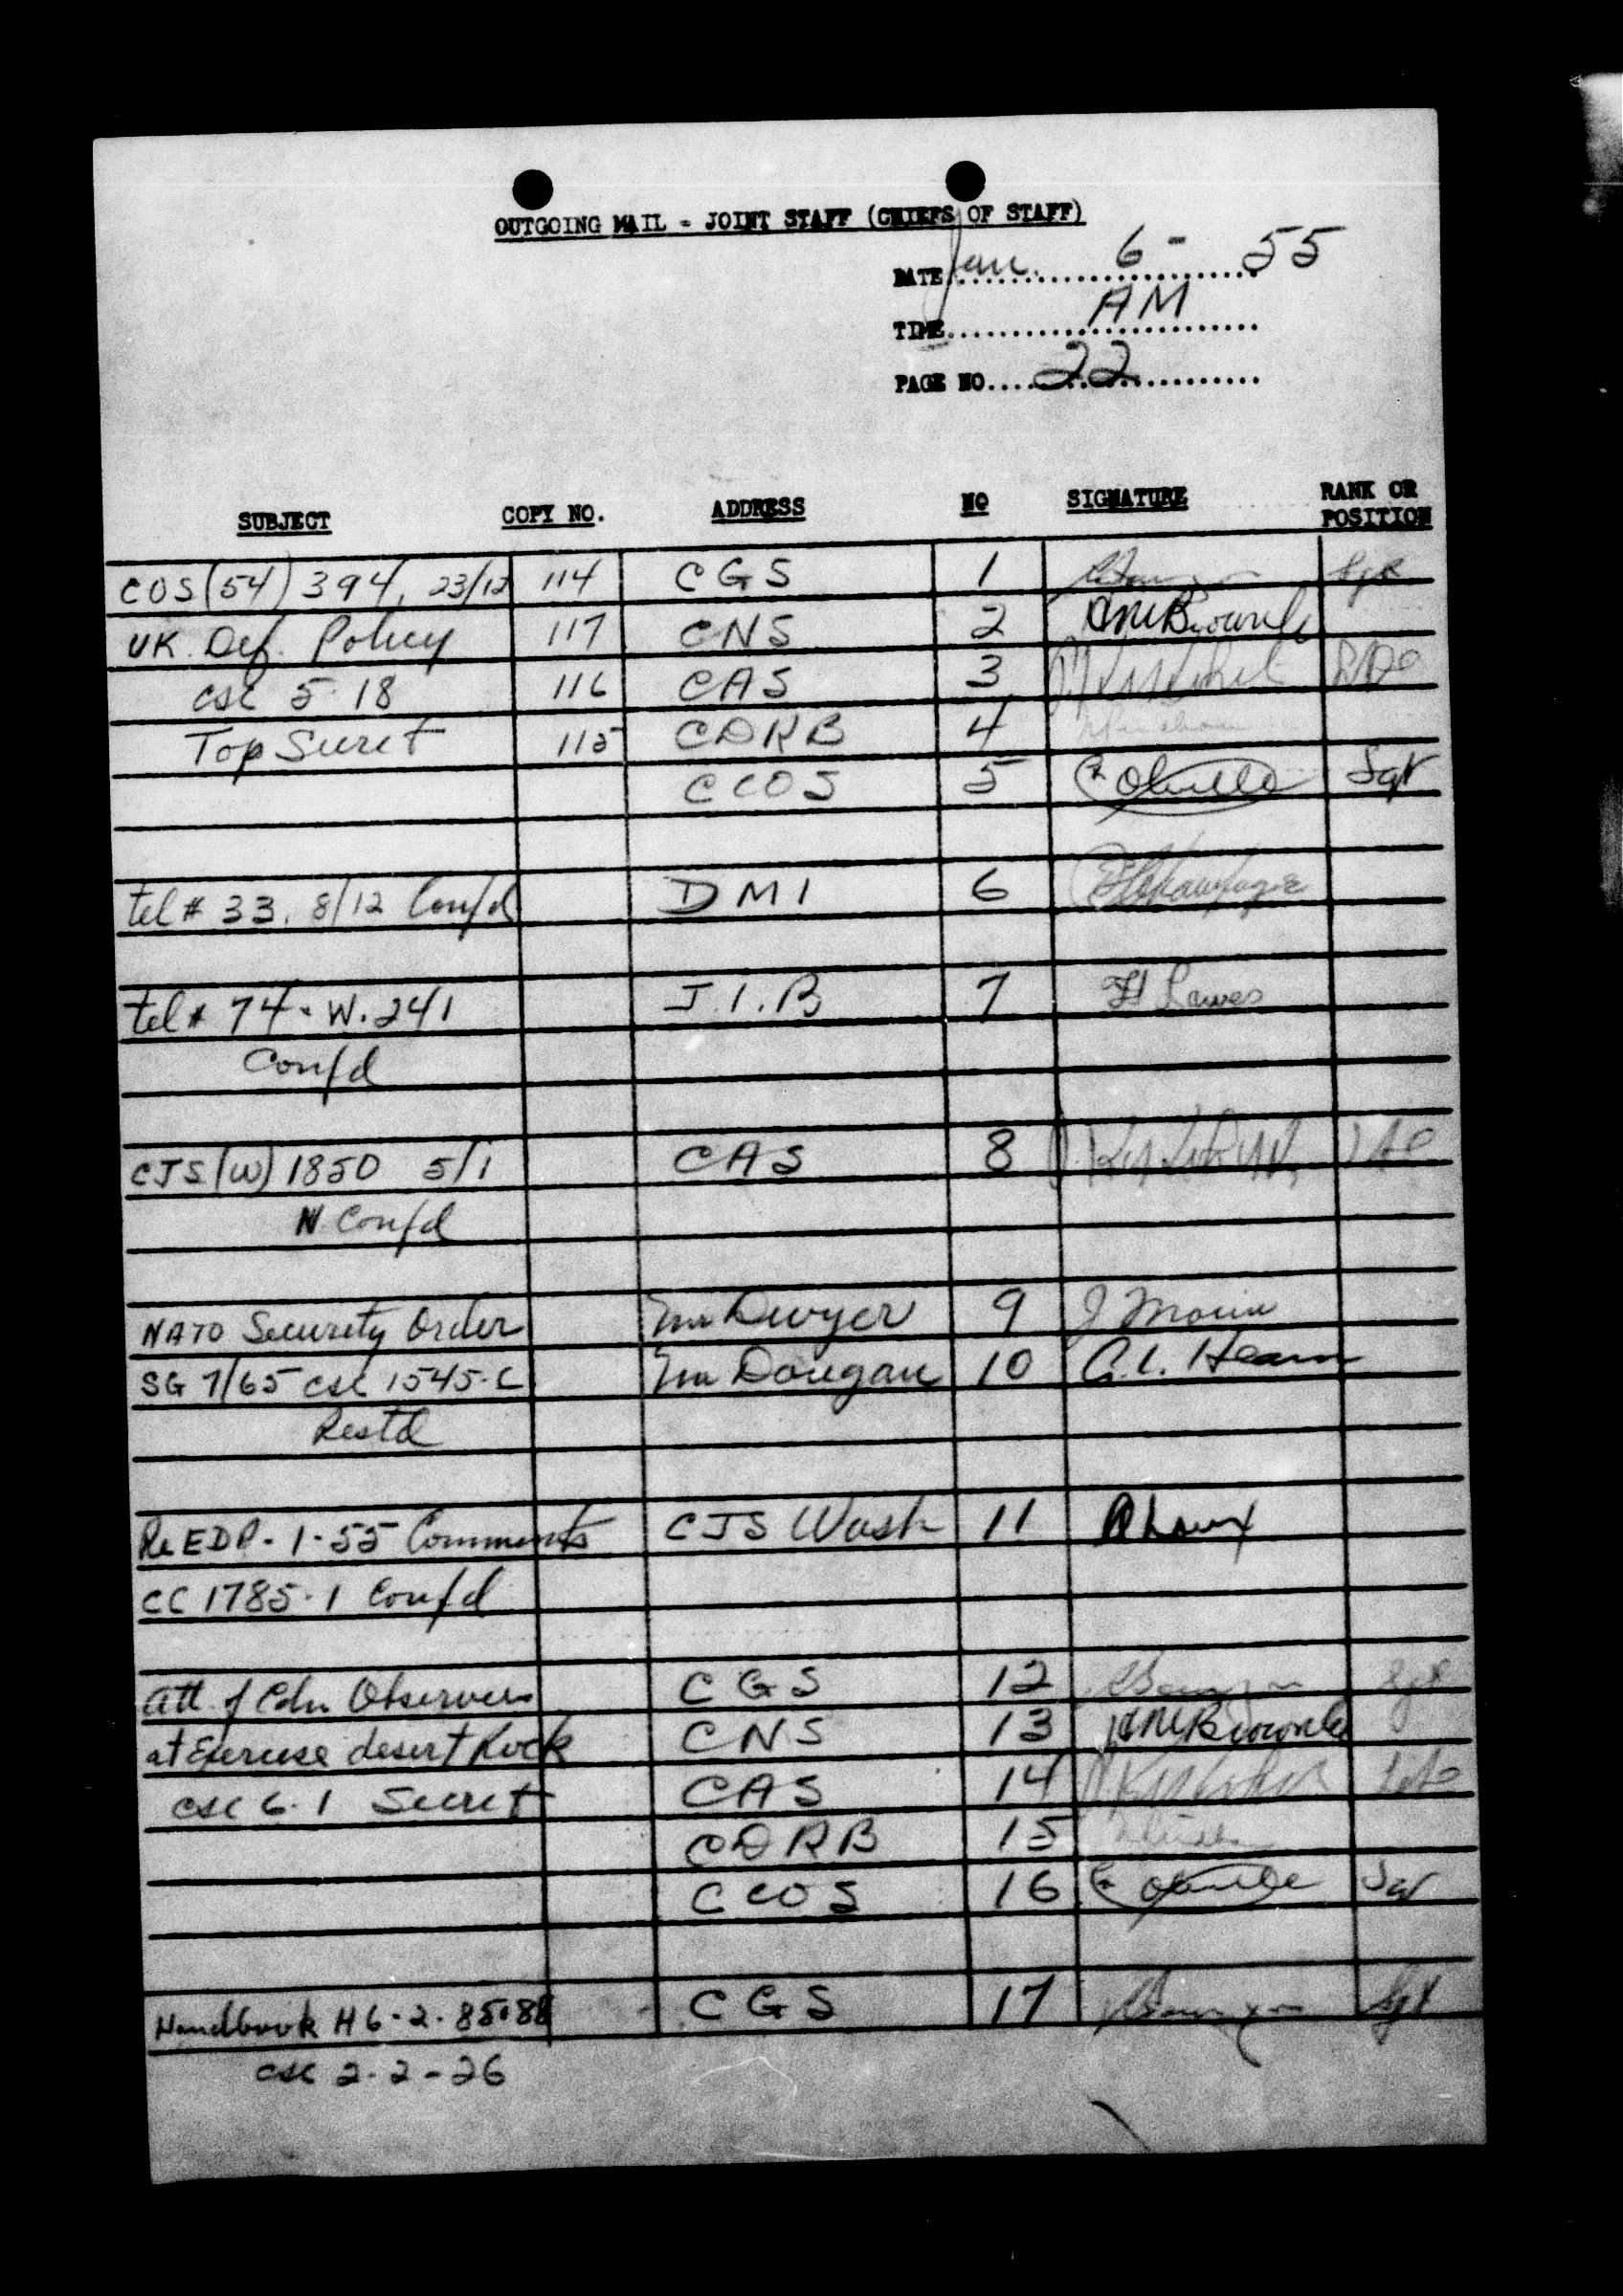 OUTGOING MAIL - JOINT STAFF (CHIEFS OF STAFF)
DATE Jan. 6 - 55
TIME AM
PAGE NO. 22
SUBJECT COPY NO. ADDRESS NO SIGNATURE RANK OR POSITION
COS(54) 394, 23/12 114 CGS 1
UK. Def. Policy 117 CNS 2
csc 5-18 116 CAS 3
Top Secret 115 CDRB 4
CCOS 5 Sgt
tel # 33, 8/12 Conf'd DMI 6
tel # 74 - W. 241 J.I.B 7 Lawes
Conf'd
CJS(W) 1850 5/1 CAS 8
N. Conf'd
NATO Security Order Mr Dwyer 9 J Morin
SG 7/65 csc 1545-C Mr Dougan 10 C.L. Hearn
Rest'd
Re EDP-1-55 Comments CJS Wash 11
CC 1785-1 Conf'd
att. of Cdn Observers CGS 12 Sgt
at Exercise desert Rock CNS 13
csc 6-1 Secret CAS 14
CDRB 15
CCOS 16 Sgt
Handbook H6-2-85088 CGS 17 Sgt
csc 2-2-26